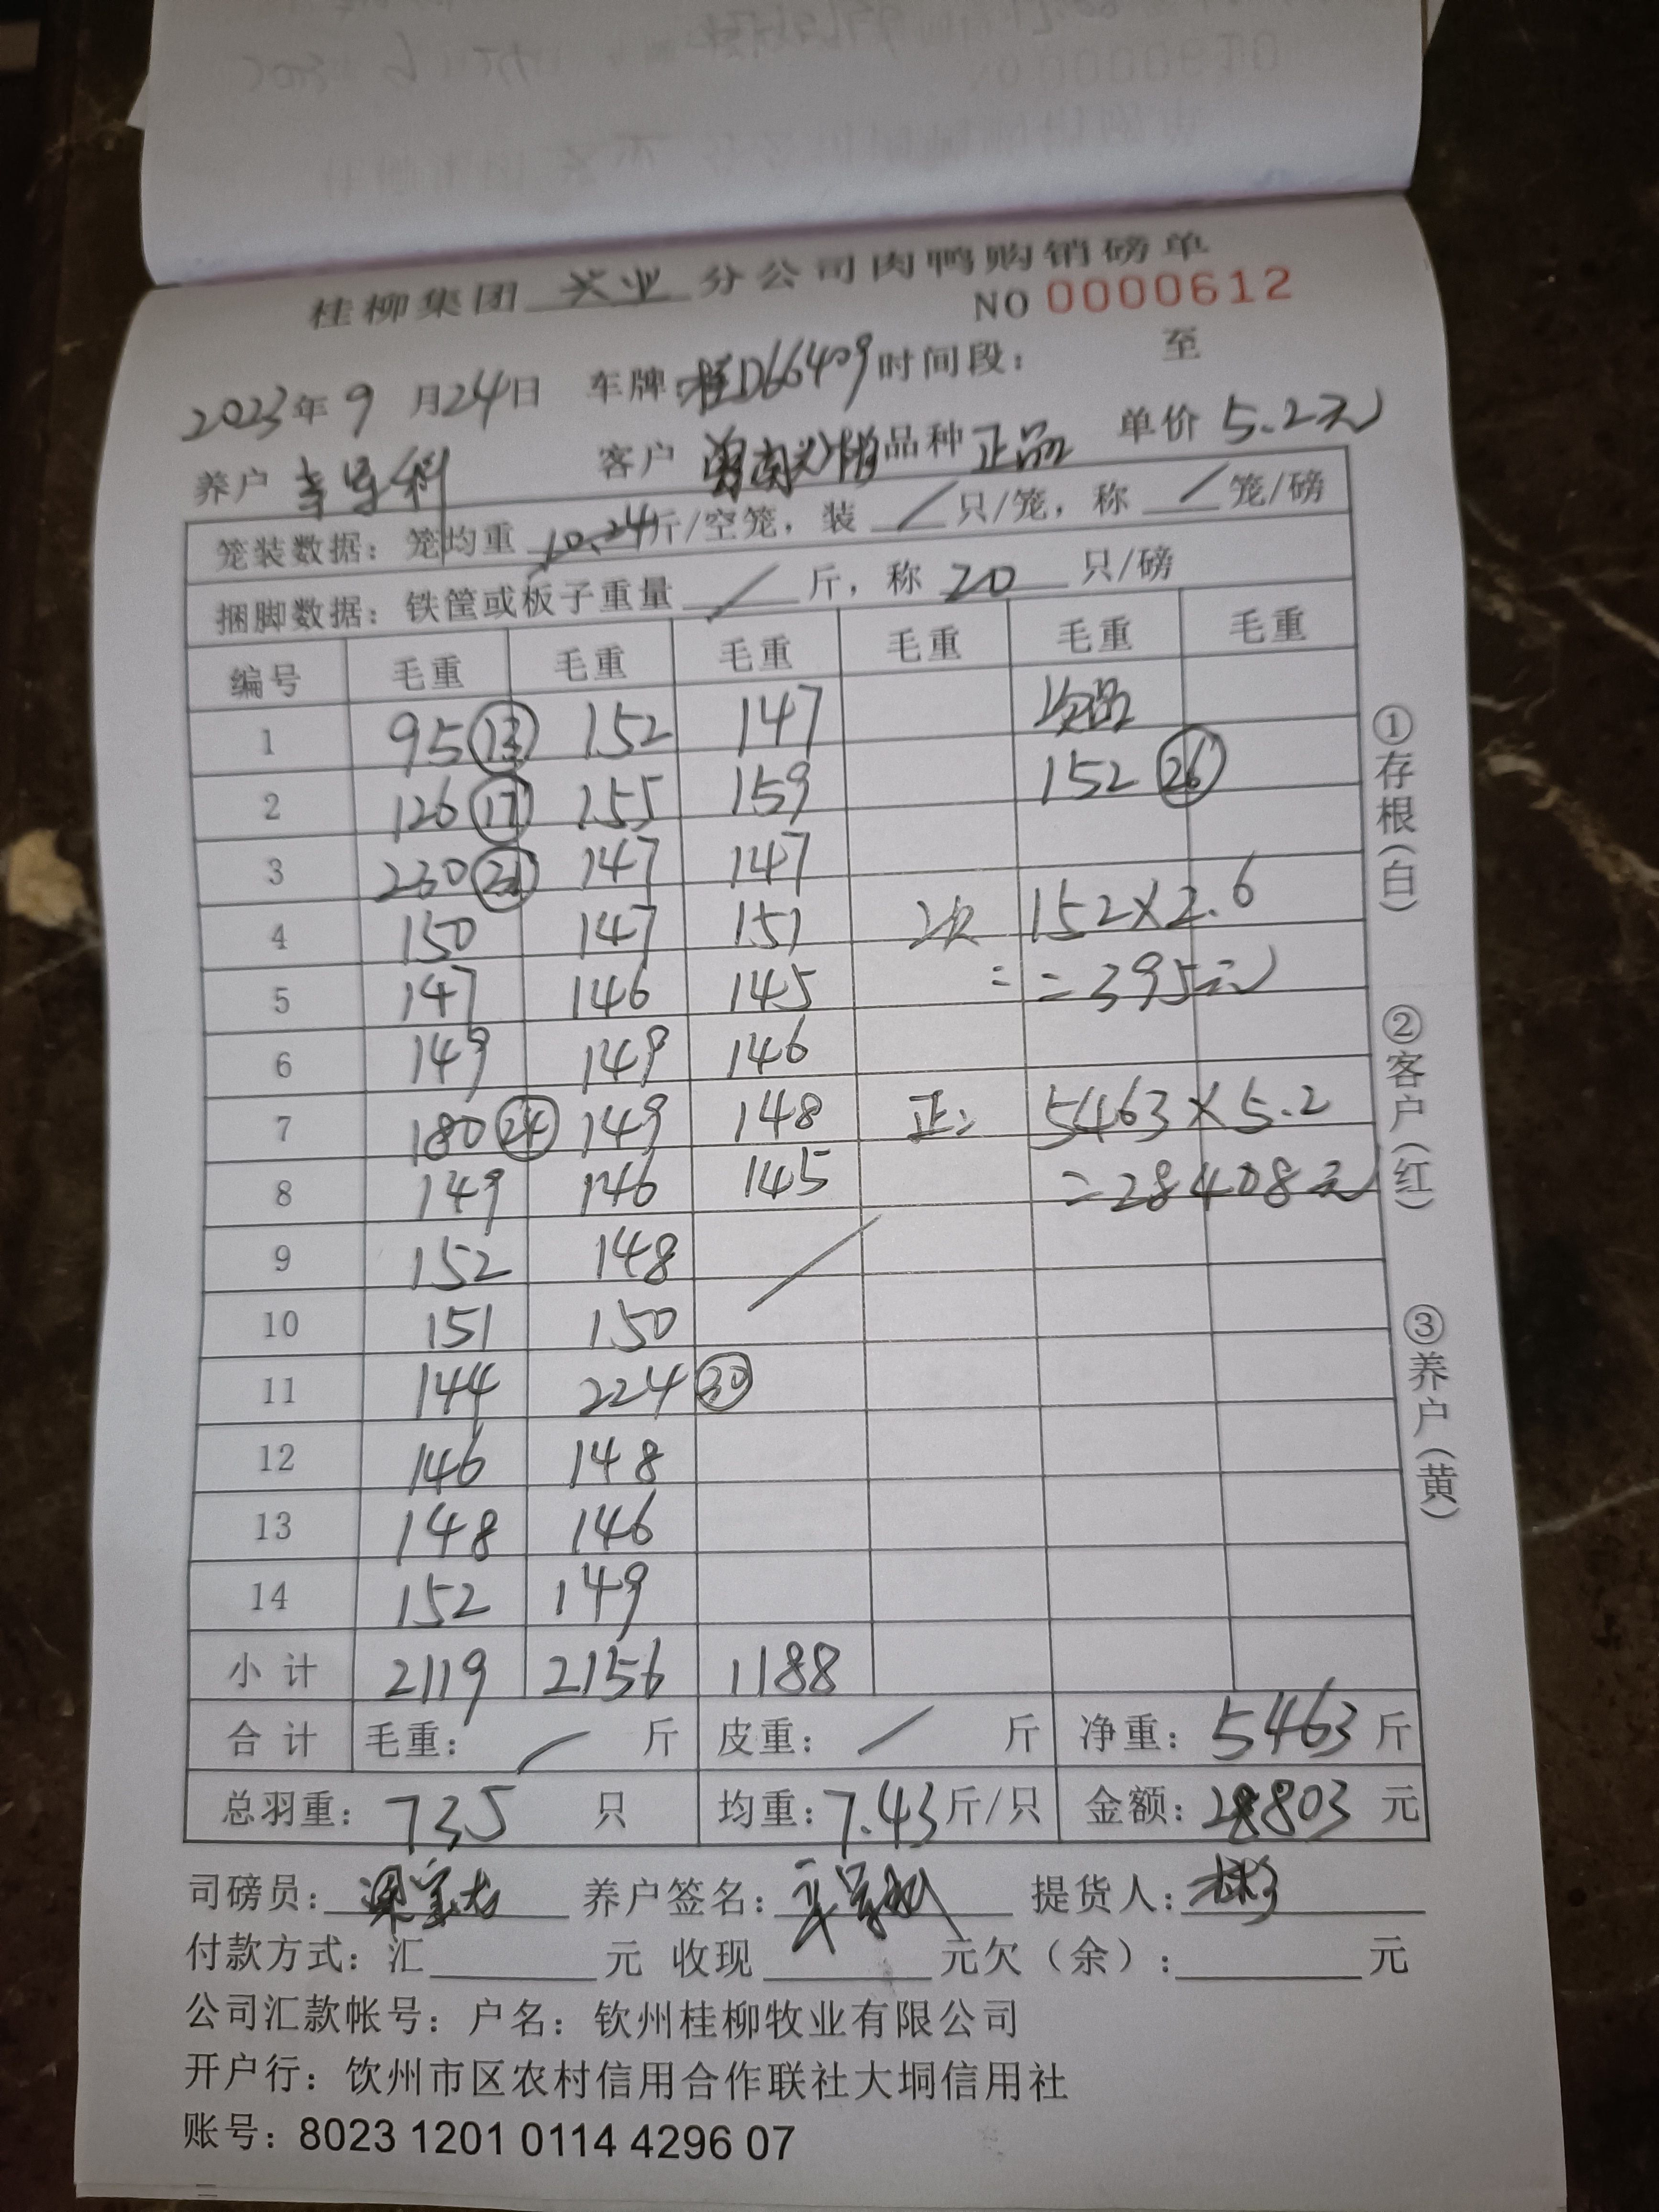 桂柳集团 兴业 分公司肉鸭购销磅单
NO 0000612
2023年9月24日 车牌:桂D66409 时间段: 至
养户 客户 品种 正品 单价 5.2元
笼装数据：笼均重 10.24斤/空笼，装 / 只/笼，称 / 笼/磅
捆脚数据：铁筐或板子重量 / 斤，称 20 只/磅
编号 毛重 毛重 毛重 毛重 毛重 毛重
1 95 ⑬ 152 147 次品
2 126 ⑰ 155 159 152 ㉖
3 230 147 147
4 150 147 151 次 152×2.6
5 147 146 145 = =395元
6 149 149 146
7 180 ㉔ 149 148 正: 5463×5.2
8 149 146 145 =28408元
9 152 148 /
10 151 150
11 144 224 ㉚
12 146 148
13 148 146
14 152 149
小计 2119 2156 1188
合计 毛重: / 斤 皮重: / 斤 净重: 5463 斤
总羽重: 735 只 均重: 7.43斤/只 金额: 28803 元
司磅员: 养户签名: 提货人:
付款方式: 汇 元 收现 元欠（余）: 元
公司汇款帐号: 户名: 钦州桂柳牧业有限公司
开户行: 钦州市区农村信用合作联社大垌信用社
账号: 8023 1201 0114 4296 07
①存根（白） ②客户（红） ③养户（黄）